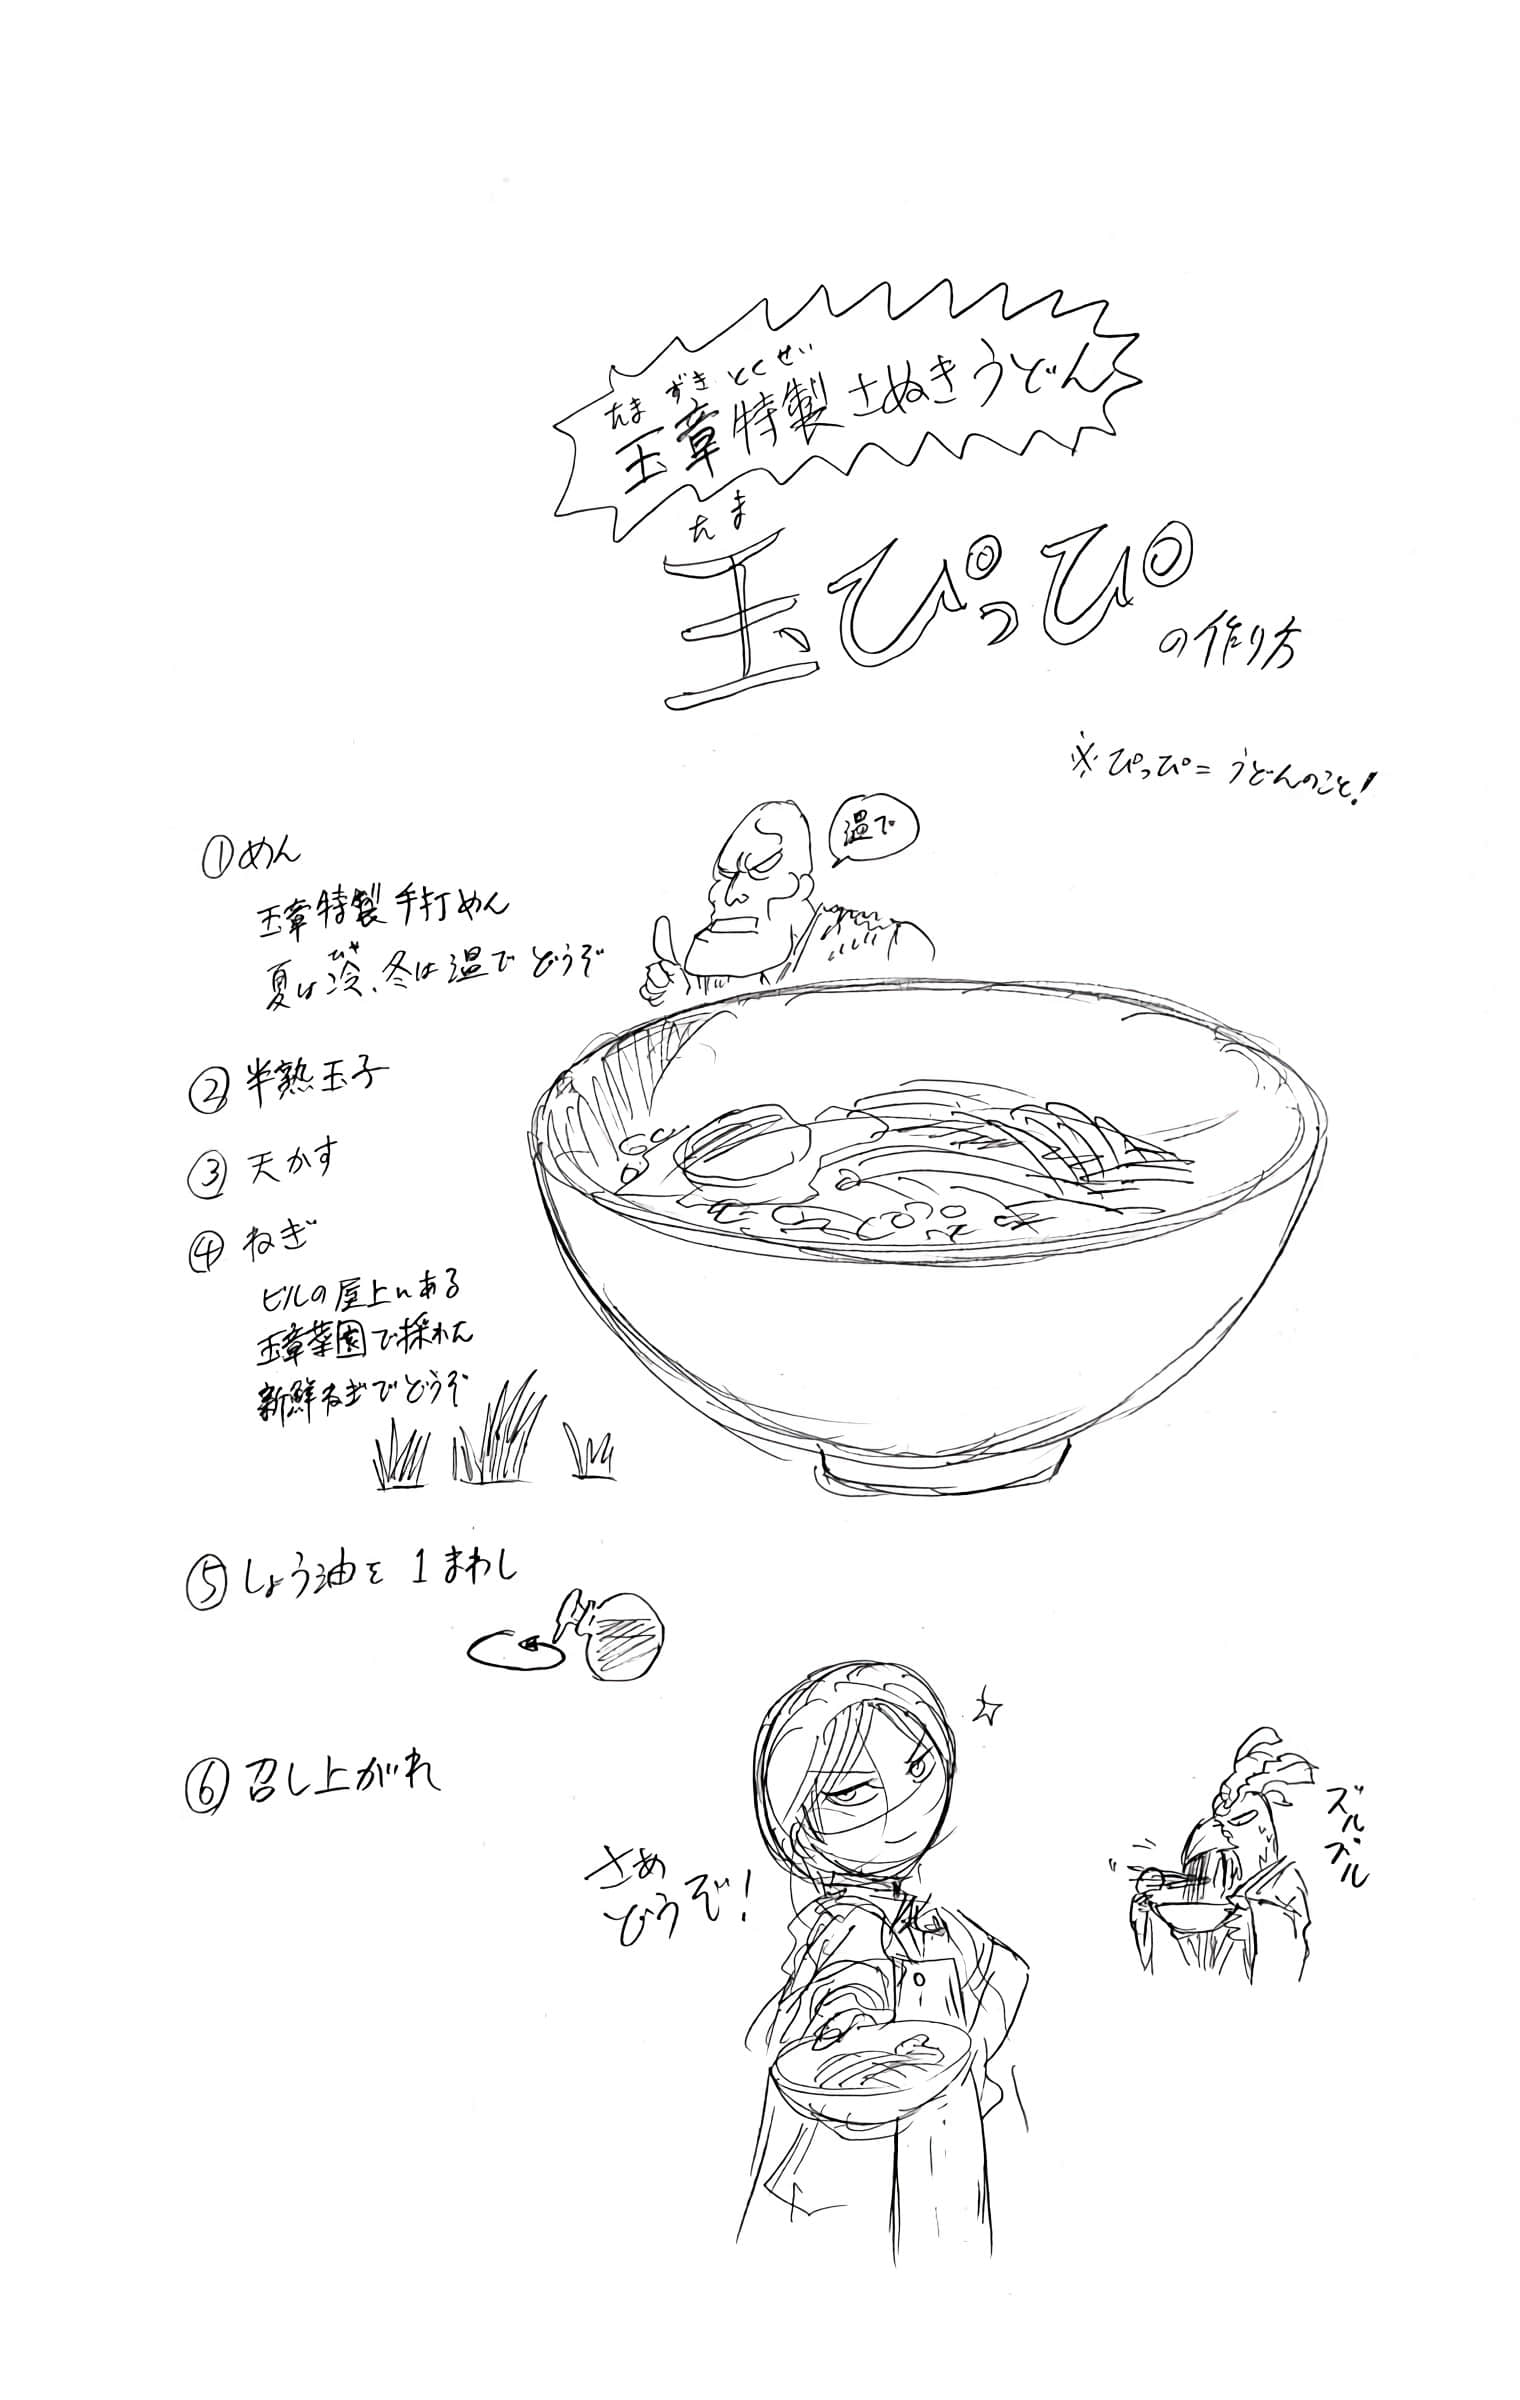 たまずきとくせい
玉章特製さぬきうどん
たま
玉ぴっぴの作り方
※ぴっぴ=うどんのこと!
①めん
玉章特製手打めん
ひや
夏は冷、冬は温でどうぞ
温で
②半熟玉子
③天かす
④ねぎ
ビルの屋上にある
玉章菜園で採れた
新鮮ねぎでどうぞ
⑤しょう油を1まわし
⑥召し上がれ
さぁ
どうぞ!
ズルズル